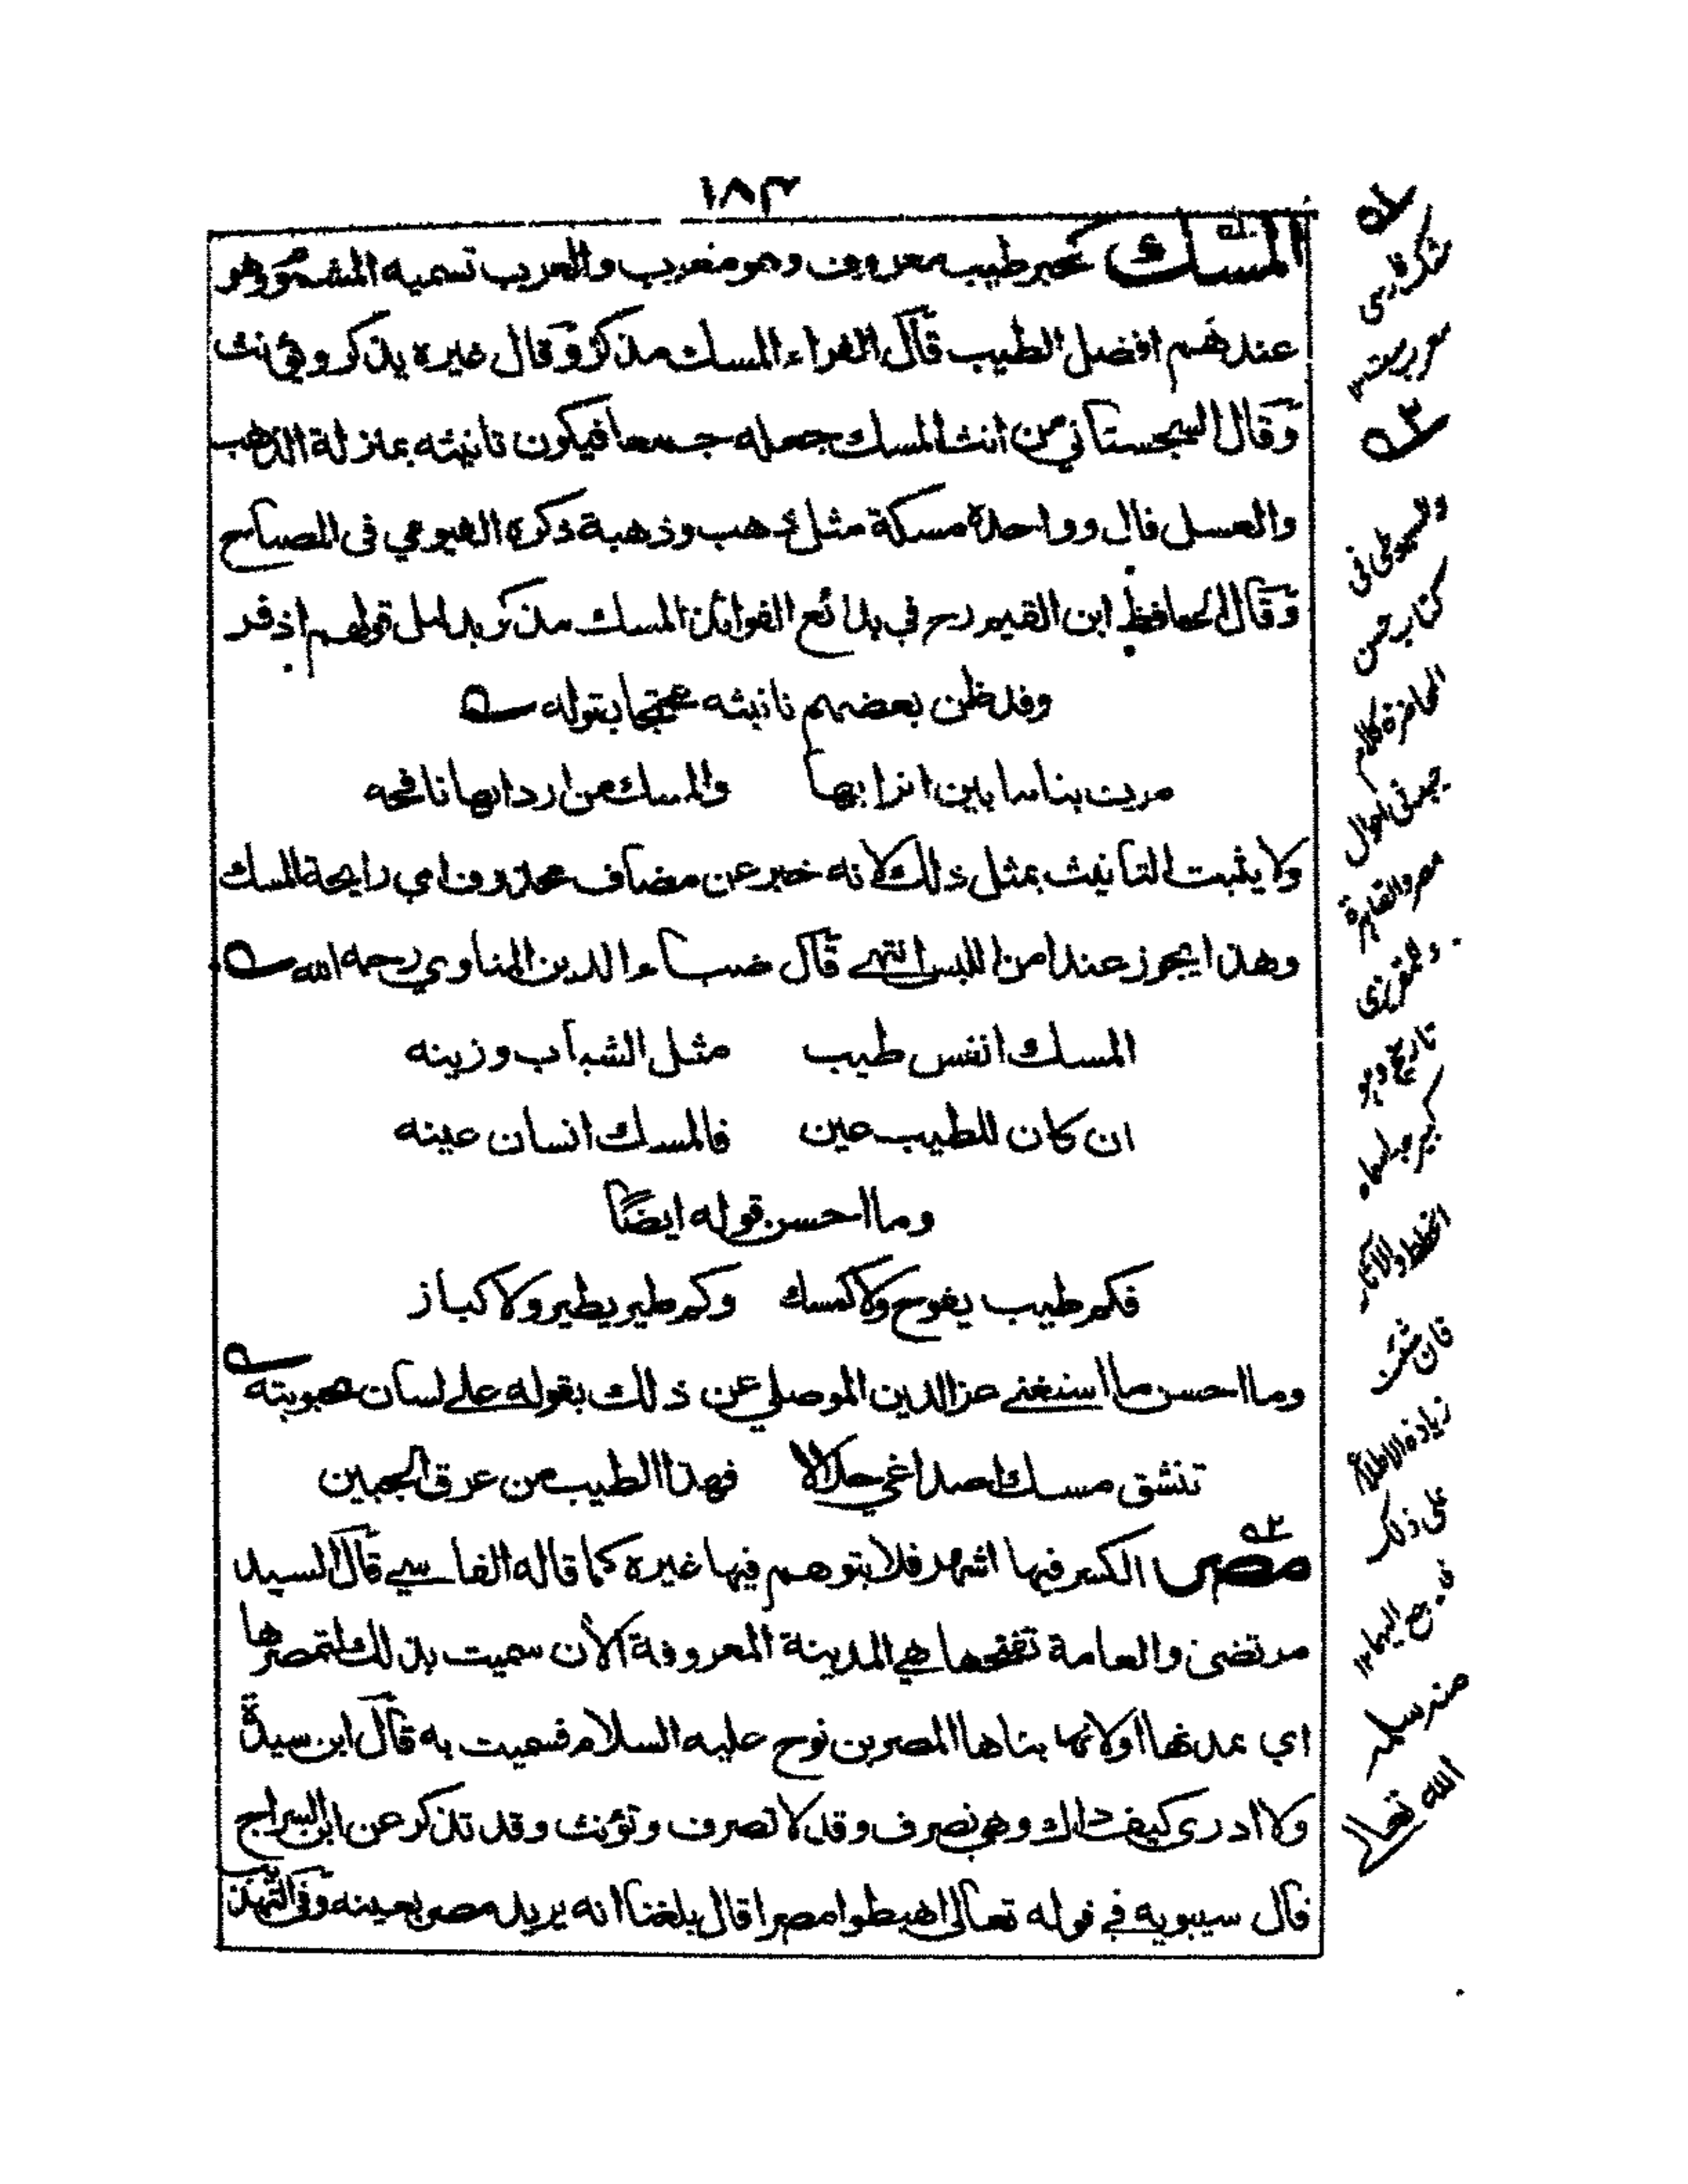 ١٨٣
المسك كحبر طيب معروف وهو معرب والعرب تسميه المشموم وهو
عندهم افضل الطيب قال الفراء المسك مذكر وقال غيره يذكر ويؤنث
وقال السجستاني من انث المسك جعله جمعا فيكون تانيثه بمنزلة الذهب
والعسل قال وواحدة مسكة مثل ذهب وذهبة ذكره الفيومي فى المصباح
وقال الحافظ ابن القيم رح في بدائع الفوائد المسك مذكر بدليل قولهم اذفر
وقد ظن بعضهم تانيثه محتجا بقوله
مرت بنا ما بين اترابها والمسك من اردانها نافحه
ولا يثبت التانيث بمثل ذلك لانه خبر عن مضاف محذوف اي رايحة المسك
وهذا يجوز عند امن اللبس انتهى قال ضياء الدين المناوي رحمه الله
المسك انفس طيب مثل الشباب وزينه
ان كان للطيب عين فالمسك انسان عينه
وما احسن قوله ايضا
فكم طيب يفوح ولا كمسك وكم طير يطير ولا كباز
وما احسن ما استغنى عز الدين الموصلي عن ذلك بقوله على لسان محبوبته
تنشق مسك اصداغي حلالا فهذا الطيب من عرق الجبين
مصر الكسر فيها اشهر فلا يتوهم فيها غيره كما قاله الفاسي قال السيد
مرتضى والعامة تفتحها هي المدينة المعروفة الآن سميت بذلك لتمصرها
اي تمدنها او لانها بناها المصر بن نوح عليه السلام فسميت به قال ابن سيدة
ولا ادرى كيف ذلك وهي تصرف وقد لا تصرف وتؤنث وقد تذكر عن ابن السراج
قال سيبويه في قوله تعالى اهبطوا مصرا قال بلغنا انه يريد مصر بعينه وفي التهذيب
وللسيوطى فى
كتاب حسن
المحاضرة
فى احوال
مصر والقاهرة
وللمقريزى
تاريخ
الخطط والآثار
فان شئت
زيادة الاطلاع
على ذلك
الله تعالى